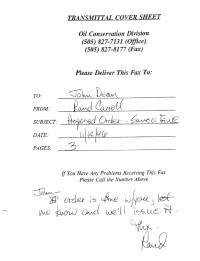 TRANSMITTAL COVER SHEET
Oil Conservation Division
(505) 827-7131 (Office)
(505) 827-8177 (Fax)
Please Deliver This Fax To:
TO: John Dean
FROM: Rand Carroll
SUBJECT: Proposed Order - Fine
DATE: 11/14/96
PAGES: 3
If You Have Any Problems Receiving This Fax
Please Call the Number Above
John -
If order is fine w/you, let
me know and we'll issue it.
Thx.
Rand